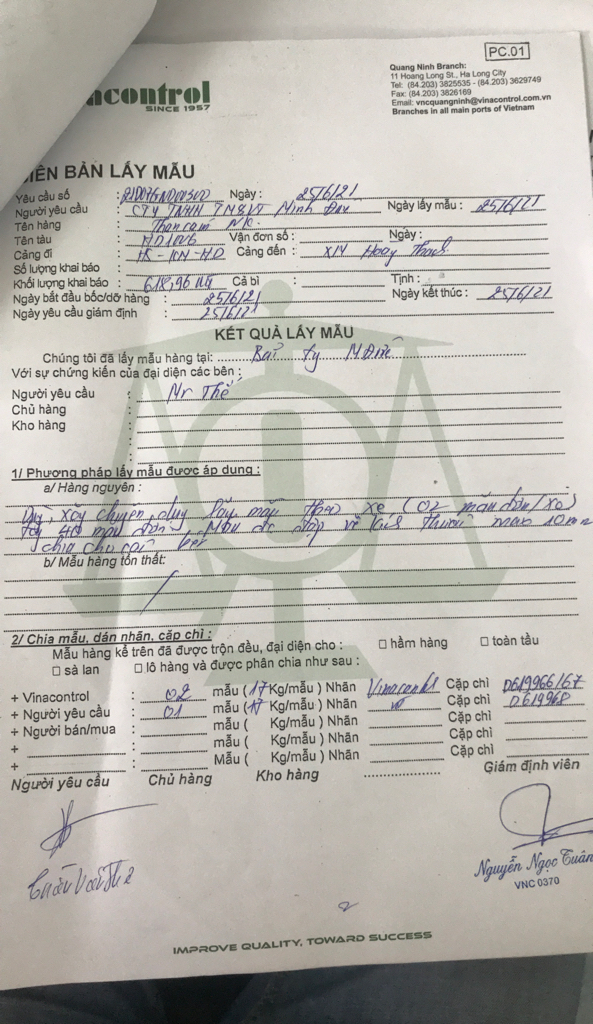 PC.01
Quang Ninh Branch:
11 Hoang Long St., Ha Long City
Tel: (84.203) 3825535 - (84.203) 3629749
Fax: (84.203) 3826169
Email: vncquangninh@vinacontrol.com.vn
Branches in all main ports of Vietnam
acontrol
SINCE 1957
IÊN BẢN LẤY MẪU
Yêu cầu số : Ngày : 25/6/21
Người yêu cầu : CTY TNHH TM&VT Minh Đức Ngày lấy mẫu : 25/6/21
Tên hàng : Than cám N/K
Tên tàu : Vận đơn số : Ngày :
Cảng đi : Cảng đến : XM Hoàng Thạch
Số lượng khai báo :
Khối lượng khai báo : 618,96 Cả bì : Tịnh :
Ngày bắt đầu bốc/dỡ hàng : 25/6/21 Ngày kết thúc : 25/6/21
Ngày yêu cầu giám định : 25/6/21
KẾT QUẢ LẤY MẪU
Chúng tôi đã lấy mẫu hàng tại: Bãi ty M Đức
Với sự chứng kiến của đại diện các bên :
Người yêu cầu : Mr Thế
Chủ hàng :
Kho hàng :
1/ Phương pháp lấy mẫu được áp dụng :
a/ Hàng nguyên :
xảy chuyển lấy mẫu theo xe (02 mẫu đơn/xe)
40 mẫu đơn, Mẫu đập về kích thước max 10mm
chia cho
b/ Mẫu hàng tổn thất:
2/ Chia mẫu, dán nhãn, cặp chì :
Mẫu hàng kể trên đã được trộn đều, đại diện cho : □ hầm hàng □ toàn tầu
□ sà lan □ lô hàng và được phân chia như sau :
+ Vinacontrol : 02 mẫu (17 Kg/mẫu ) Nhãn Vinacontrol Cặp chì 0619966/67
+ Người yêu cầu : 01 mẫu (17 Kg/mẫu ) Nhãn Cặp chì 0619968
+ Người bán/mua : mẫu ( Kg/mẫu ) Nhãn Cặp chì
+ : mẫu ( Kg/mẫu ) Nhãn Cặp chì
+ : Mẫu ( Kg/mẫu ) Nhãn Cặp chì
Người yêu cầu Chủ hàng Kho hàng Giám định viên
Trần Văn Thế
Nguyễn Ngọc Tuân
VNC 0370
2
IMPROVE QUALITY, TOWARD SUCCESS